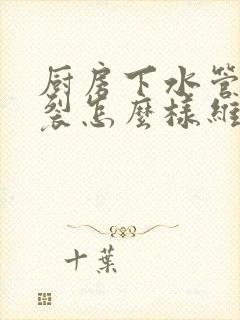 厨房下水管
裂怎麼樣維
十葉